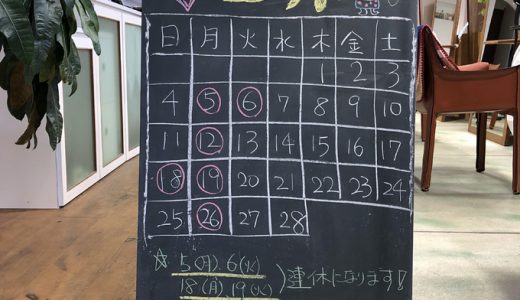 日 月 火 水 木 金 土
1 2 3
4 5 6 7 8 9 10
11 12 13 14 15 16 17
18 19 20 21 22 23 24
25 26 27 28
☆ 5(月) 6(火)
18(月) 19(火)
) 連休になります!